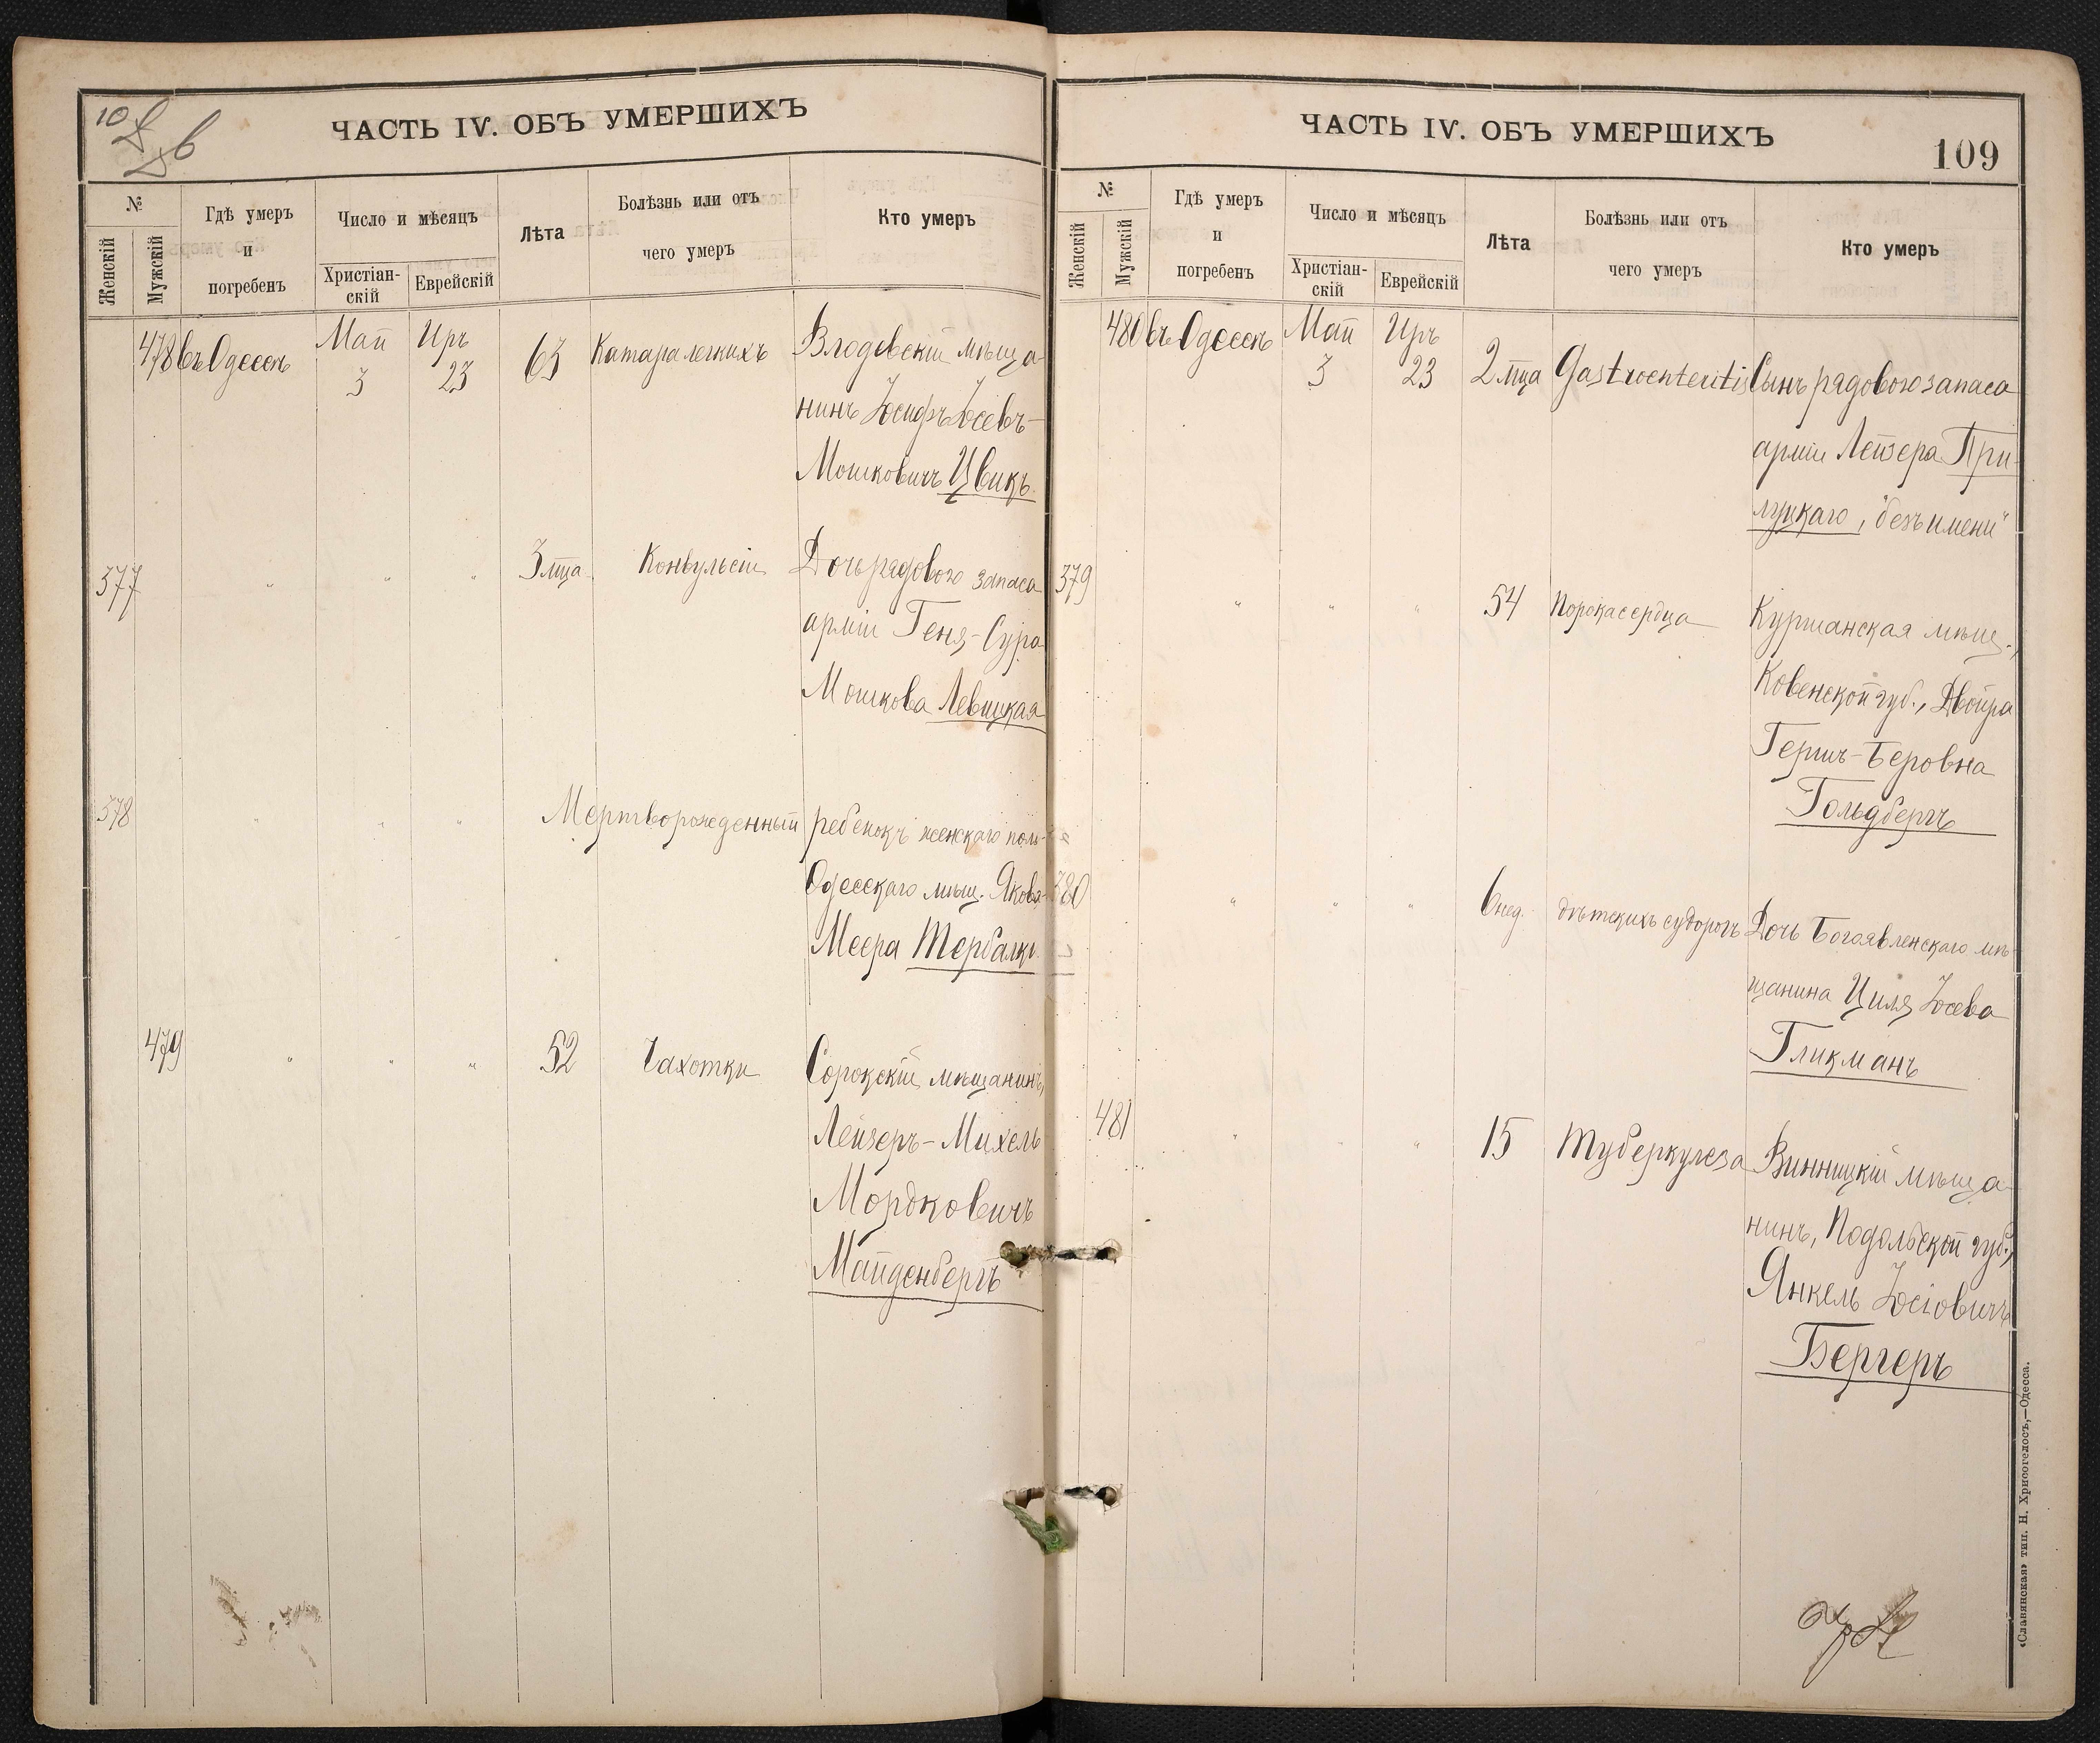 ЧАСТЬ IV. ОБЪ УМЕРШИХЪ
№
Женскій
Мужскій
Гдѣ умеръ
и
погребенъ
Число и мѣсяцъ
Христіан-
скій
Еврейскій
Лѣта
Болѣзнь или отъ
чего умеръ
Кто умеръ
478 въ Одессѣ Май 3 Иръ 23 63 Катара легкихъ Влодавскій мѣща-
нинъ Іосифъ Іосевъ-
Мошковичъ Цвикъ.
377 " " " 3 мца Конвульсіи Дочь рядового запаса
арміи Геня-Сура
Мошкова Левицкая
378 " " " Мертворожденный ребенокъ женскаго пола
Одесскаго мѣщ. Якова-
Меера
479 " " " 52 Чахотки Сорокскій мѣщанинъ,
Лейзеръ-Михель
Мордковичъ
Майденбергъ
ЧАСТЬ IV. ОБЪ УМЕРШИХЪ
109
№
Женскій
Мужскій
Гдѣ умеръ
и
погребенъ
Число и мѣсяцъ
Христіан-
скій
Еврейскій
Лѣта
Болѣзнь или отъ
чего умеръ
Кто умеръ
480 въ Одессѣ Май 3 Иръ 23 2 мца Gastroenteritis Сынъ рядового запаса
арміи Лейзера При-
лукаго, "безъ имени"
379 " " " 54 Порока сердца Куршанская мѣщ.,
Ковенской губ., Двойра
Гершъ-Беровна
Гольдбергъ
380 " " " 6 нед. дѣтскихъ судорогъ Дочь Богоявленскаго мѣ-
щанина Циля Іосева
Гликманъ
481 " " " 15 Туберкулеза Винницкій мѣща-
нинъ, Подольской губ.,
Янкель Іосіовичъ
Бергеръ
«Славянская» тип. Н. Хрисогелосъ,—Одесса.